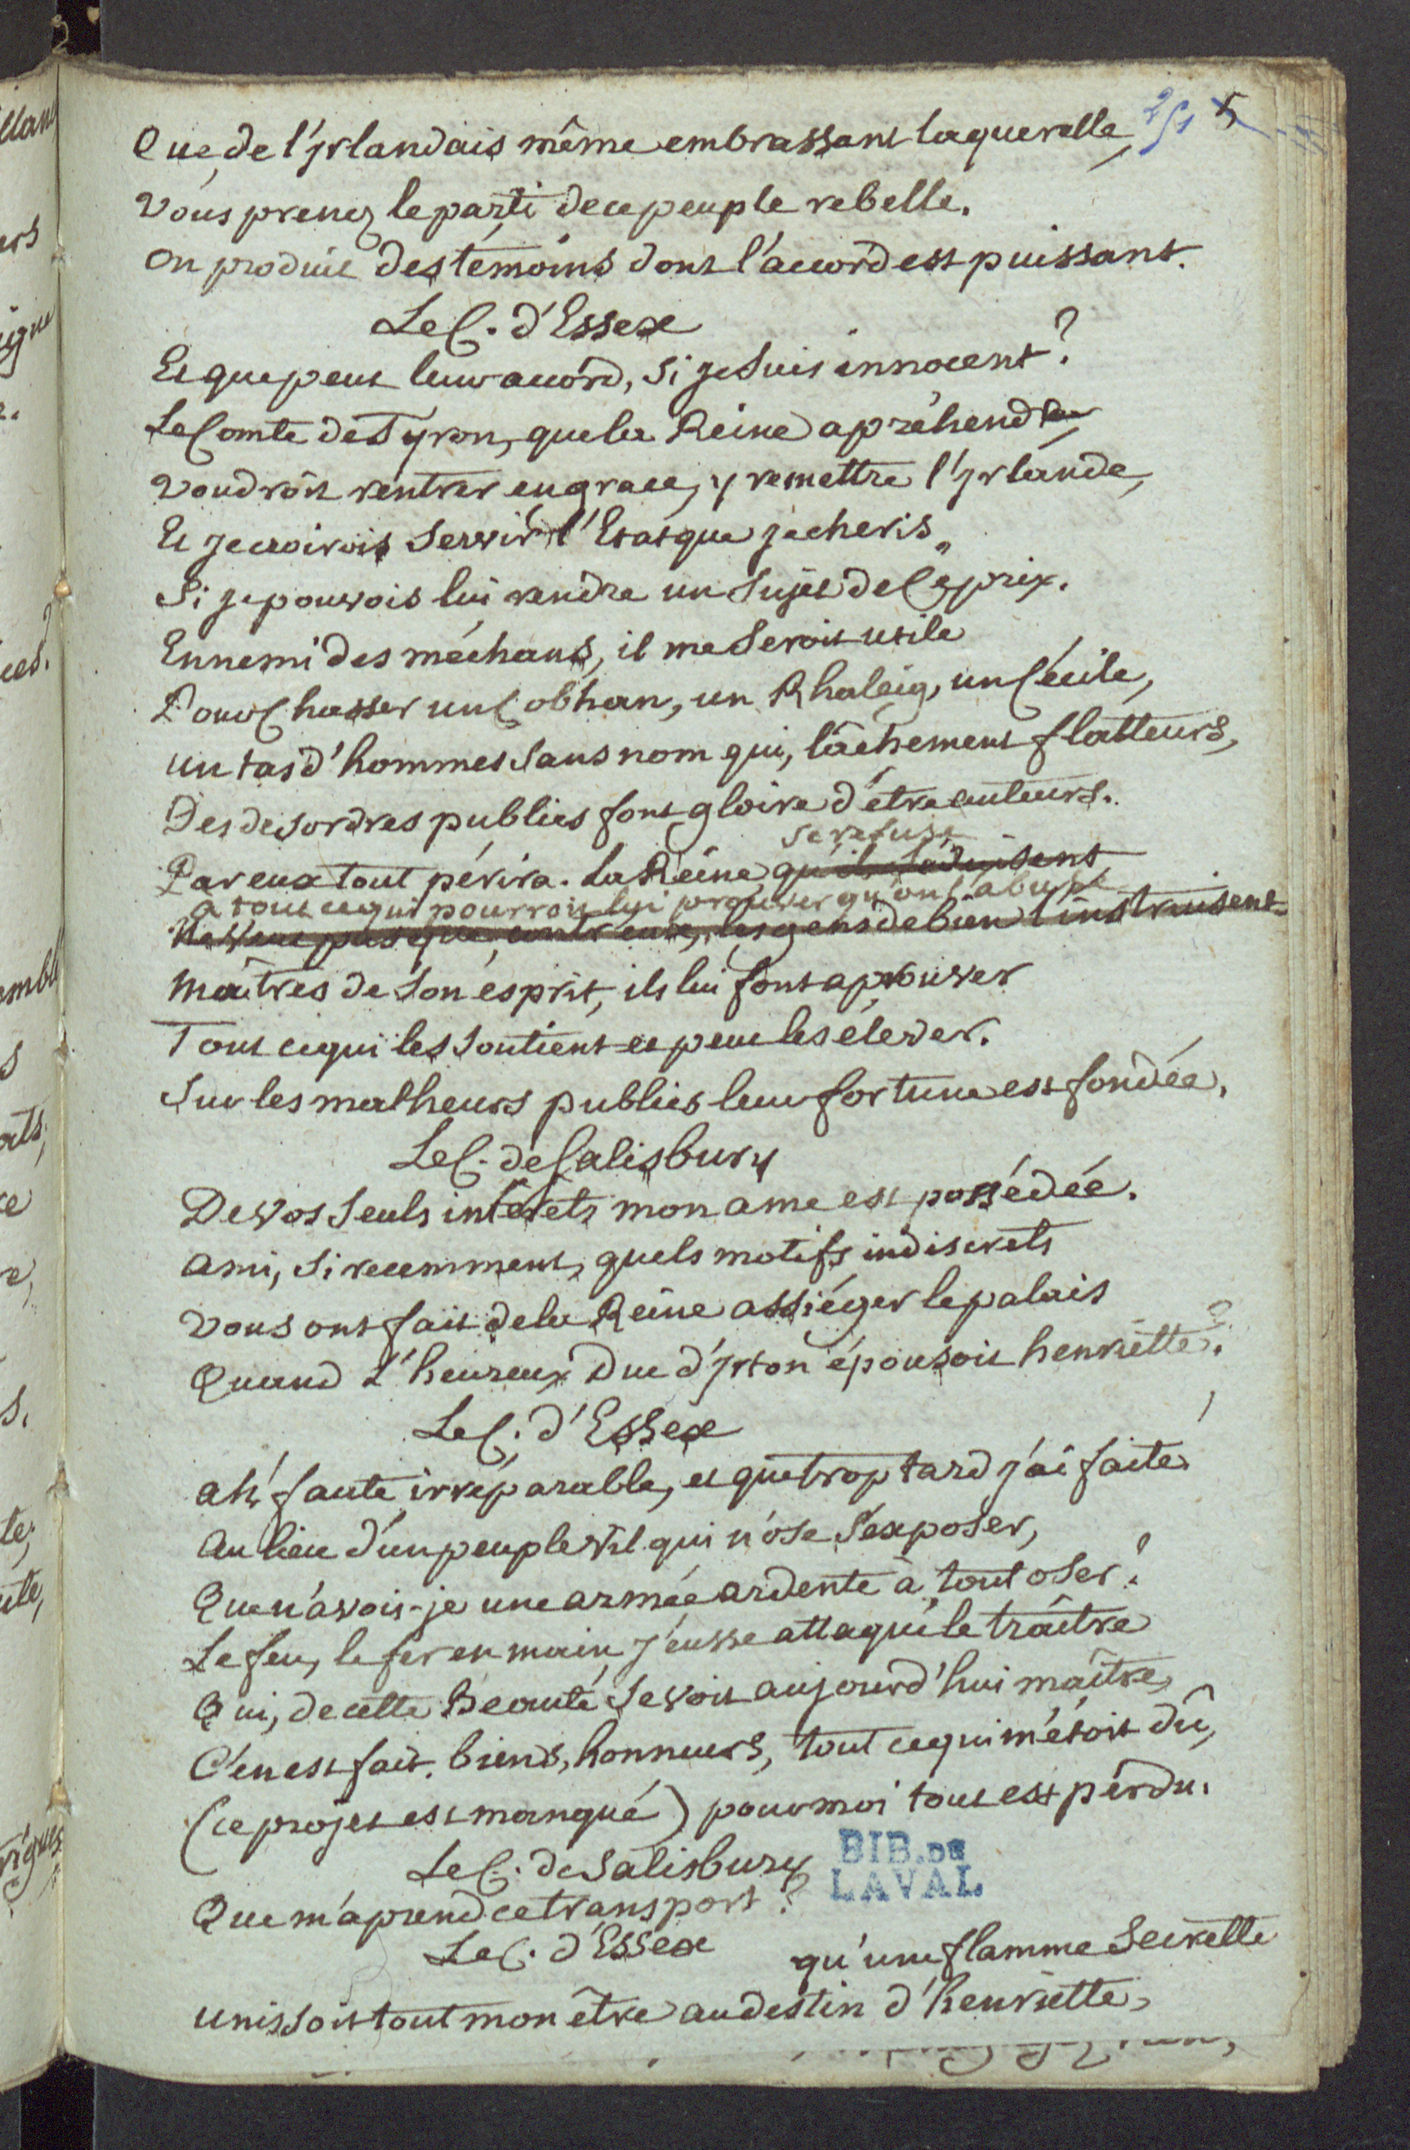 251 5
Que, de l'Yrlandais même embrassant la querelle,
Vous prenez le parti de ce peuple rebelle.
On produit des témoins dont l'accord est puissant.
Le C. d'Essex
Et que peut leur accord, si je suis innocent?
Le Comte de Tyron, que la Reine apréhende,
Voudroit rentrer en grace, y remettre l'Yrlande,
Et je croirois servir l'Etat que je cheris,
Si je pouvois lui rendre un sujet de ce prix.
Ennemi des méchans, il me seroit utile
Pour Chasser un Cobhan, un Rhaleig, un Cécile,
un tas d'hommes sans nom qui, lâchement flatteurs,
Des desordres publics font gloire d'être auteurs.
se refuse
Par eux tout périra. La Reine, qu'ils séduisent
a tout ce qui pourroit lui prouver qu'on l'abuse
Ne veut pas que, contr'eux, les gens de bien l'instruisent.
Maîtres de son esprit, ils lui font aprouver
Tout ce qui les soutient et peut les élever.
Sur les malheurs publics leur fortune est fondée.
Le C. de Salisbury
De vos seuls intérêts mon ame est possédée.
Ami, si recemment, quels motifs indiscrets
Vous ont fait de la Reine assiéger le palais
Quand L'heureux Duc d'Yrton épousoit henriette?
Le C. d'Essex
ah! faute irréparable, et que trop tard j'ai faite!
Au lieu d'un peuple vil qui n'ose s'exposer,
Que n'avois-je une armée ardente à tout oser!
Le feu, le fer en main, j'eusse attaqué le traître
Qui, de cette Beauté se voit aujourd'hui maître,
C'en est fait. biens, honneurs, tout ce qui m'étoit dû,
(ce projet est manqué) pour moi tout est perdu.
Le C. de Salisbury
BIB. DE
LAVAL
Que m'aprend ce transport?
Le C. d'Essex
qu'une flamme secrette
unissoit tout mon être au destin d'henriette,